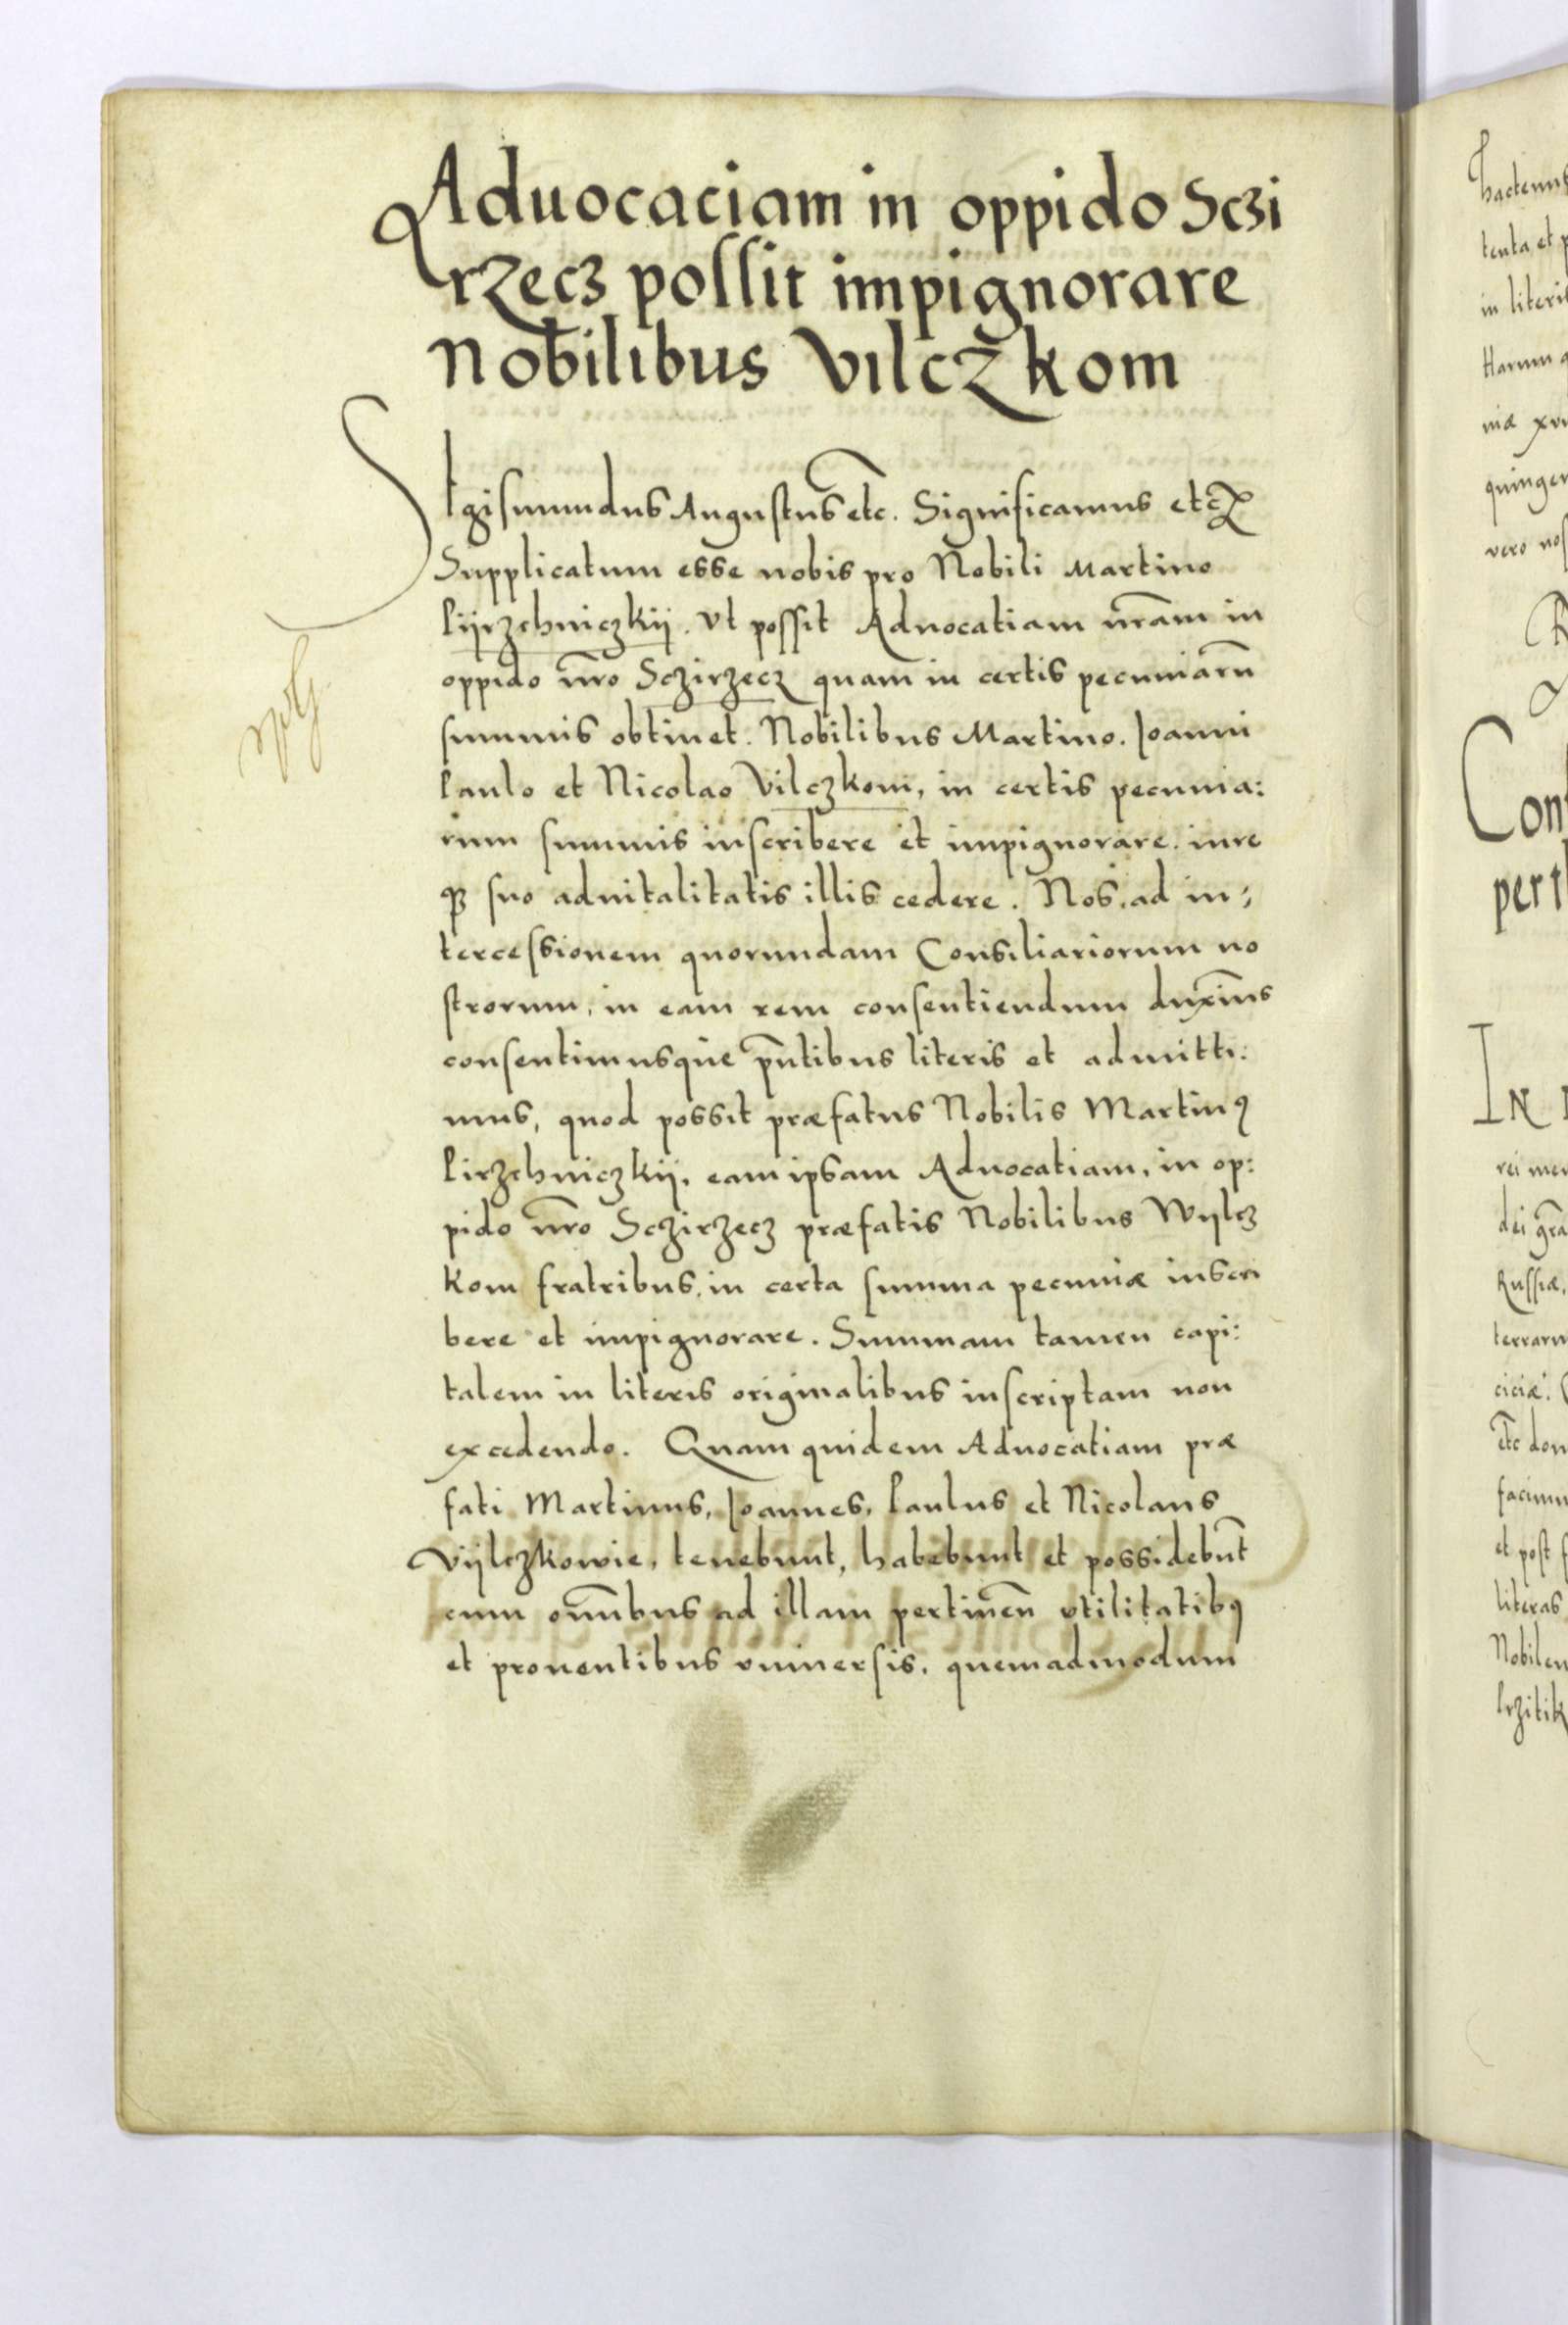 Aduocaciam in oppido Sczi
rzecz possit impignorare
Nobilibus Vilczkom
Sigismundus Augustus etc. Significamus etc
Supplicatum esse nobis pro Nobili Martino
Pijrzchniczkij. Vt possit Aduocatiam nr̃am in
oppido nr̃o Sczirzecz quam in certis pecuniarũ
summis obtinet. Nobilibus Martino. Joanni
Paulo et Nicolao Vilczkom, in certis pecunia:
rum summis inscribere et impignorare. iure
qȝ suo aduitalitatis illis cedere. Nos, ad in:
tercessionem quorundam Consiliariorum no
strorum, in eam rem consentiendum duxim̃s
consentimusque pñtibus literis et admitti:
mus, quod possit præfatus Nobilis Martinꝰ
Pirzchniczkij, eam ipsam Aduocatiam, in op:
pido nr̃o Sczirzecz præfatis Nobilibus Wijlcz
kom fratribus, in certa summa pecuniæ inscri
bere et impignorare. Summam tamen capi:
talem in literis originalibus inscriptam non
excedendo. Quam quidem Aduocatiam præ
fati Martinus, Joannes, Paulus et Nicolaus
Vijlczkowie, tenebunt, habebunt et possidebũt
cum om̃ibus ad illam pertineñ vtilitatibꝰ
et prouentibus vniuersis, quemadmodum